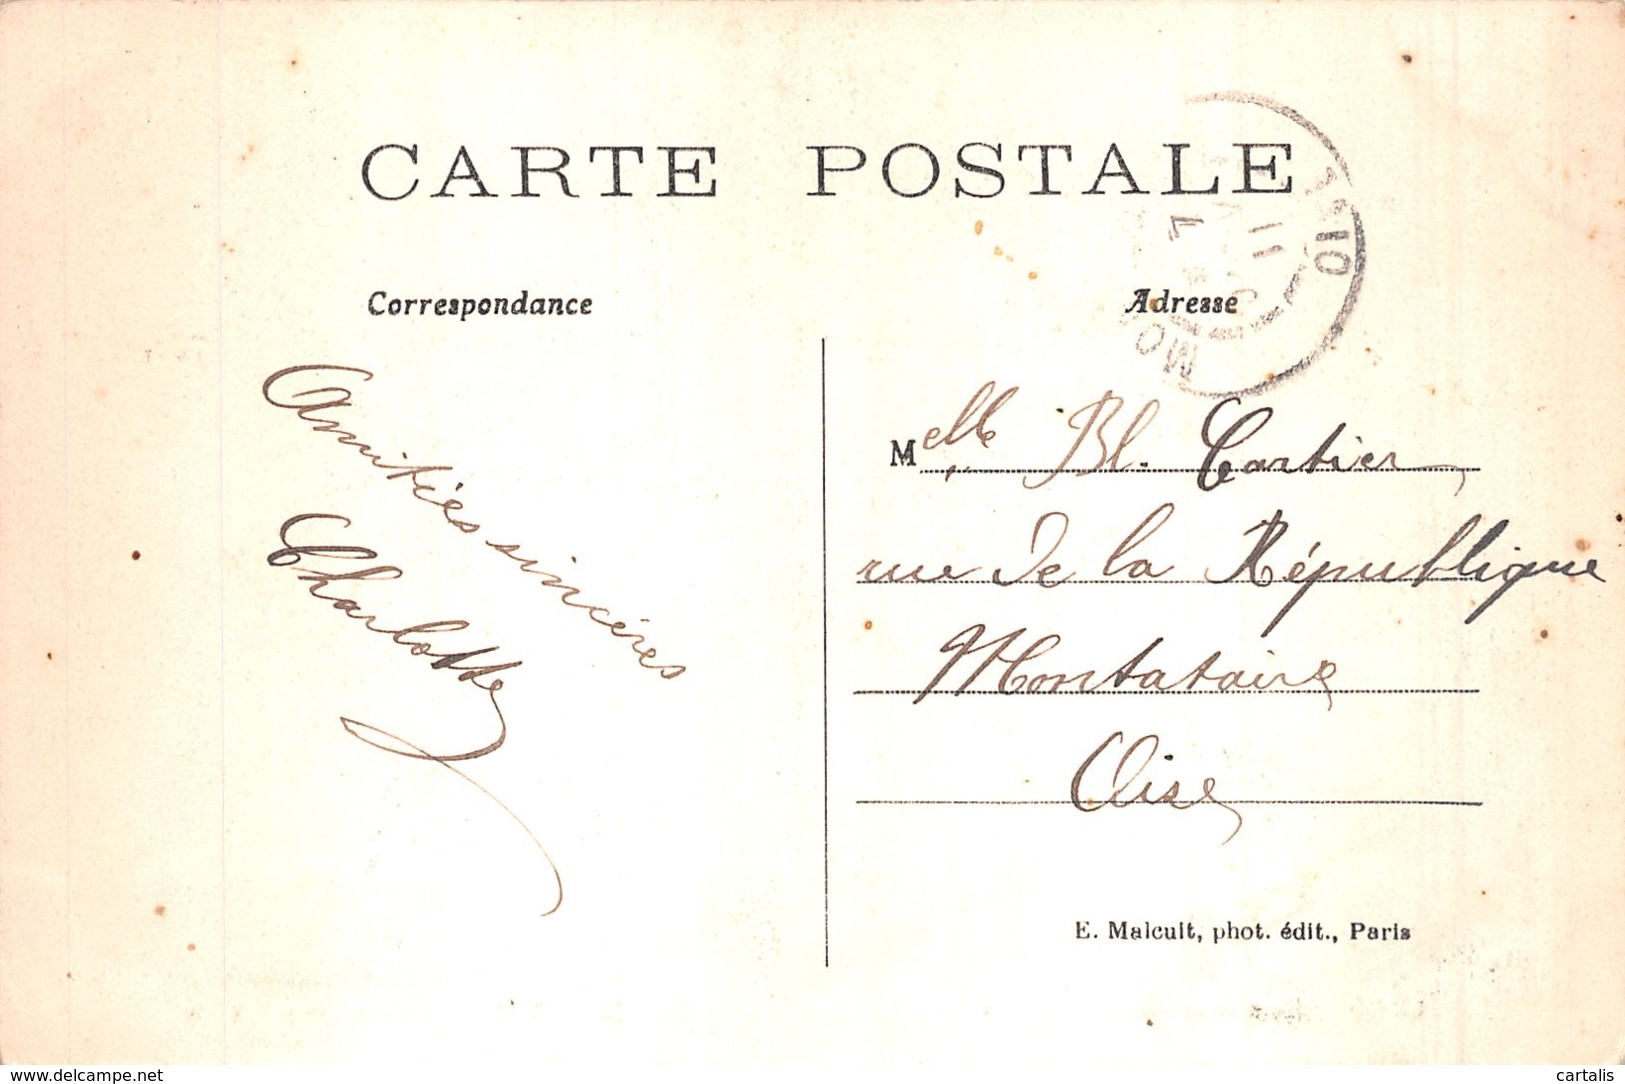 CARTE POSTALE
Correspondance
Adresse
Amitiés sincères
Charlotte
Melle Bl. Cartier
rue de la République
Montataire
Oise
E. Malcuit, phot. édit., Paris
www.delcampe.net
cartalis